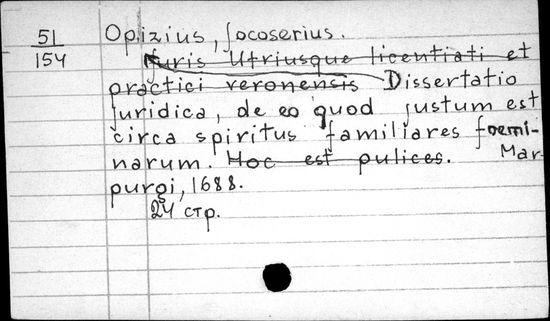 51
154
Opizius, Jocoserius.
Juris Utriusque licentiati et
practici veronensis Dissertatio
juridica, de eo quod justum est
circa spiritus familiares foemi-
narum. Hoc est pulices. Mar-
purgi, 1688.
24 стр.